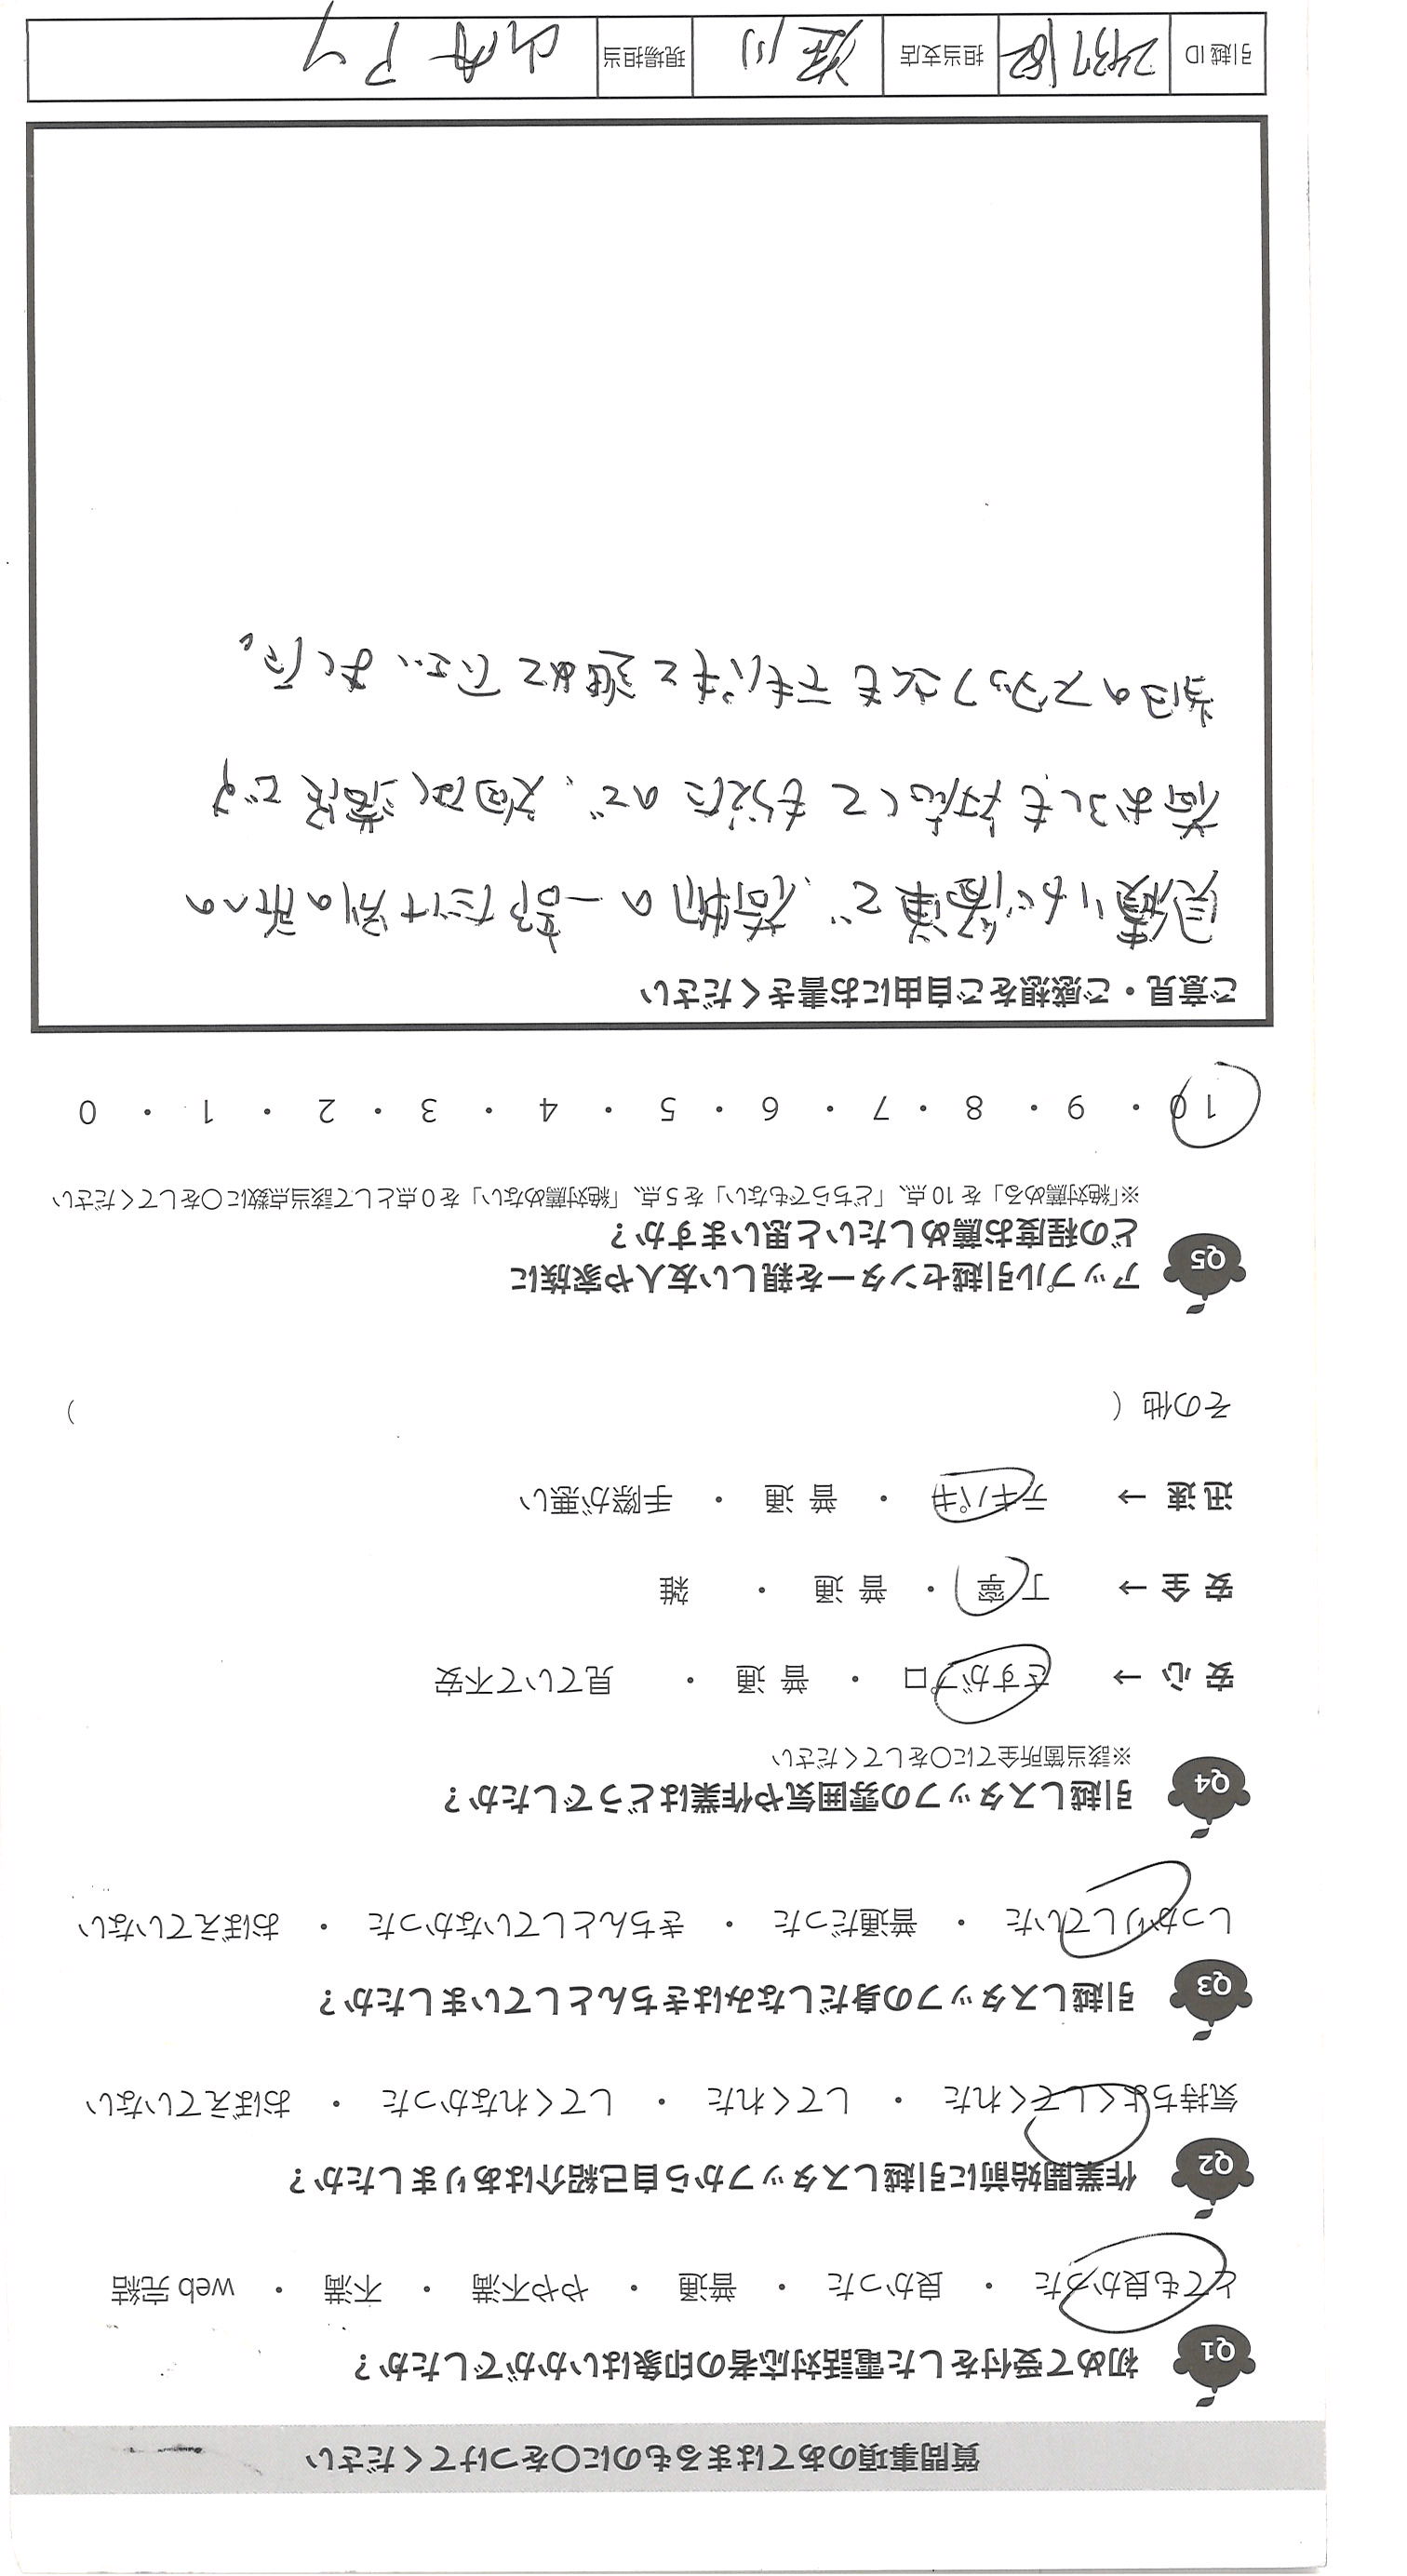 質問事項のあてはまるものに○をつけてください
Q1 初めて受付をした電話対応者の印象はいかがでしたか？
とても良かった ・ 良かった ・ 普通 ・ やや不満 ・ 不満 ・ web 完結
Q2 作業開始前に引越しスタッフから自己紹介はありましたか？
気持ちよくしてくれた ・ してくれた ・ してくれなかった ・ おぼえていない
Q3 引越しスタッフの身だしなみはきちんとしていましたか？
しっかりしていた ・ 普通だった ・ きちんとしていなかった ・ おぼえていない
Q4 引越しスタッフの雰囲気や作業はどうでしたか？
※該当箇所全てに○をしてください
安心 → さすがプロ ・ 普通 ・ 見ていて不安
安全 → 丁寧 ・ 普通 ・ 雑
迅速 → テキパキ ・ 普通 ・ 手際が悪い
その他（ ）
Q5 アップル引越センターを親しい友人や家族に
どの程度お薦めしたいと思いますか？
※「絶対薦める」を 10 点、「どちらでもない」を 5 点、「絶対薦めない」を 0 点として該当点数に○をしてください
10 ・ 9 ・ 8 ・ 7 ・ 6 ・ 5 ・ 4 ・ 3 ・ 2 ・ 1 ・ 0
ご意見・ご感想をご自由にお書きください
見積りから優車で、荷物の一部だけ別の所への
荷おろしも対応してもらえたので、文句なく満足です
当日のスタッフ対応もテキパキと進めて下さいました。
引越 ID 2437182 担当支店 現場担当